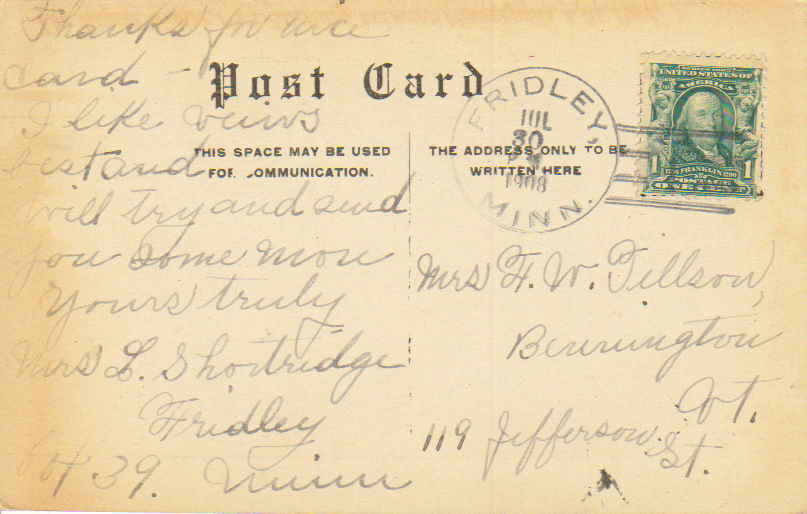 Thanks for nice
card -
I like views
best and
will try and send
you some more
Yours truly
Mrs L. Shortridge
Fridley
Box 39. Minn
Post Card
THIS SPACE MAY BE USED
FOR COMMUNICATION.
THE ADDRESS ONLY TO BE
WRITTEN HERE
FRIDLEY,
JUL
30
1908
MINN.
UNITED STATES OF
AMERICA
1
FRANKLIN
POSTAGE
ONE CENT
Mrs F. W. Tillson,
Bennington
Vt.
119 Jefferson St.